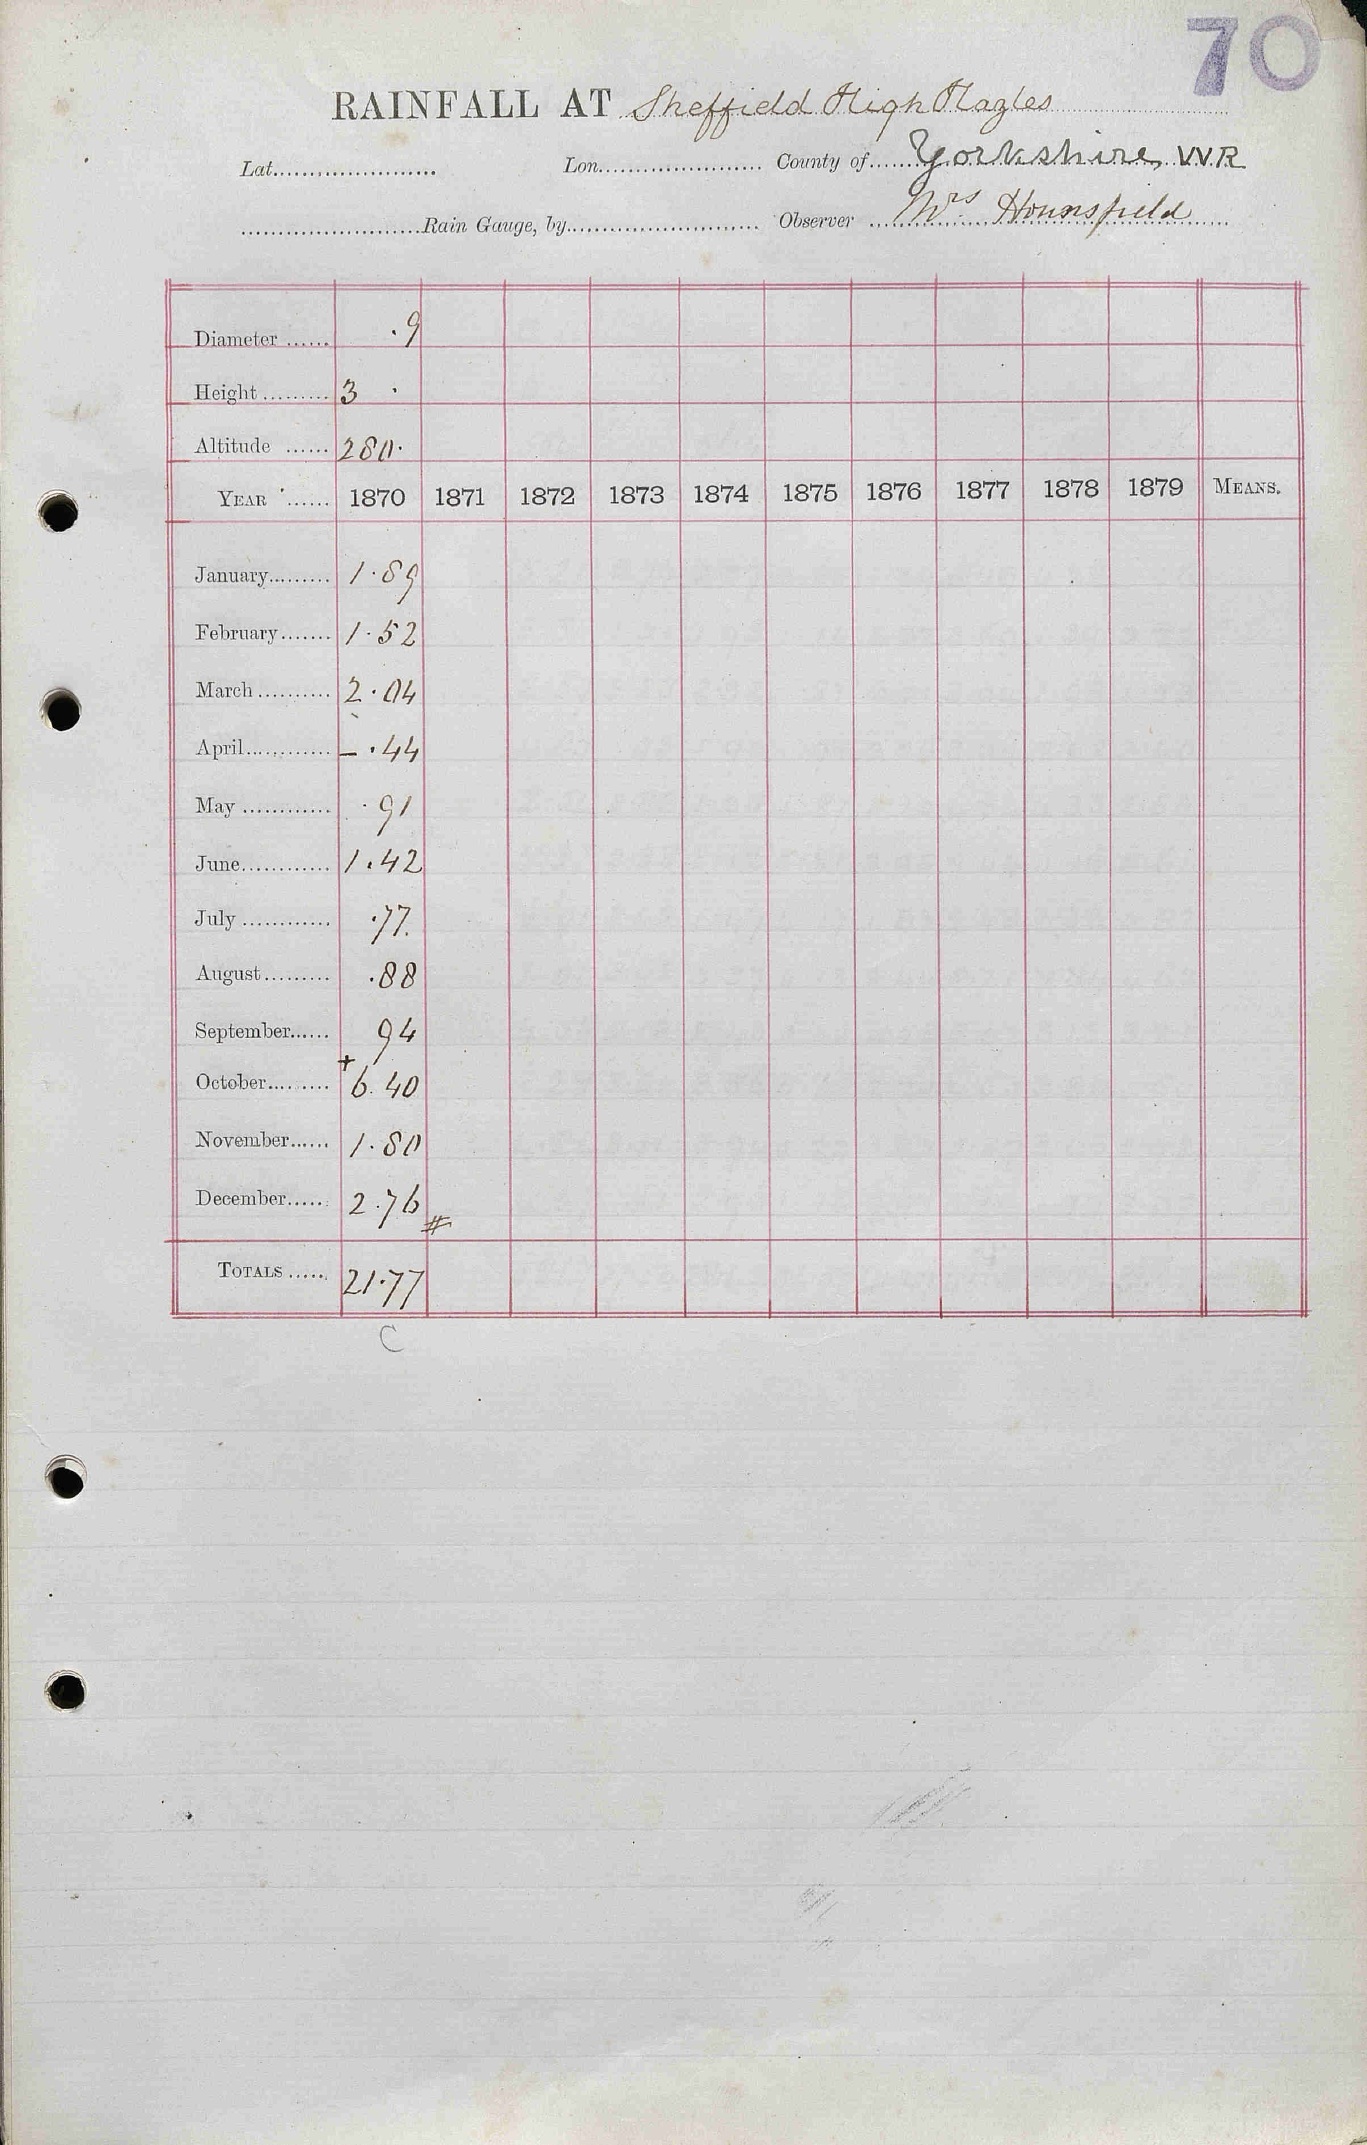 70
RAINFALL AT Sheffield High Hazles
Lat. Lon. County of Yorkshire, W.R
Rain Gauge, by Observer Mrs Hounsfield
Diameter ...... .9
Height ......... 3 .
Altitude ...... 280.
YEAR ...... 1870 1871 1872 1873 1874 1875 1876 1877 1878 1879 MEANS.
January......... 1.89
February....... 1.52
March .......... 2.04
April............ – .44
May ............ .91
June............ 1.42
July ............ .77.
August......... .88
September...... 94
October......... + 6.40
November...... 1.80
December...... 2.76 #
TOTALS ..... 21.77
C